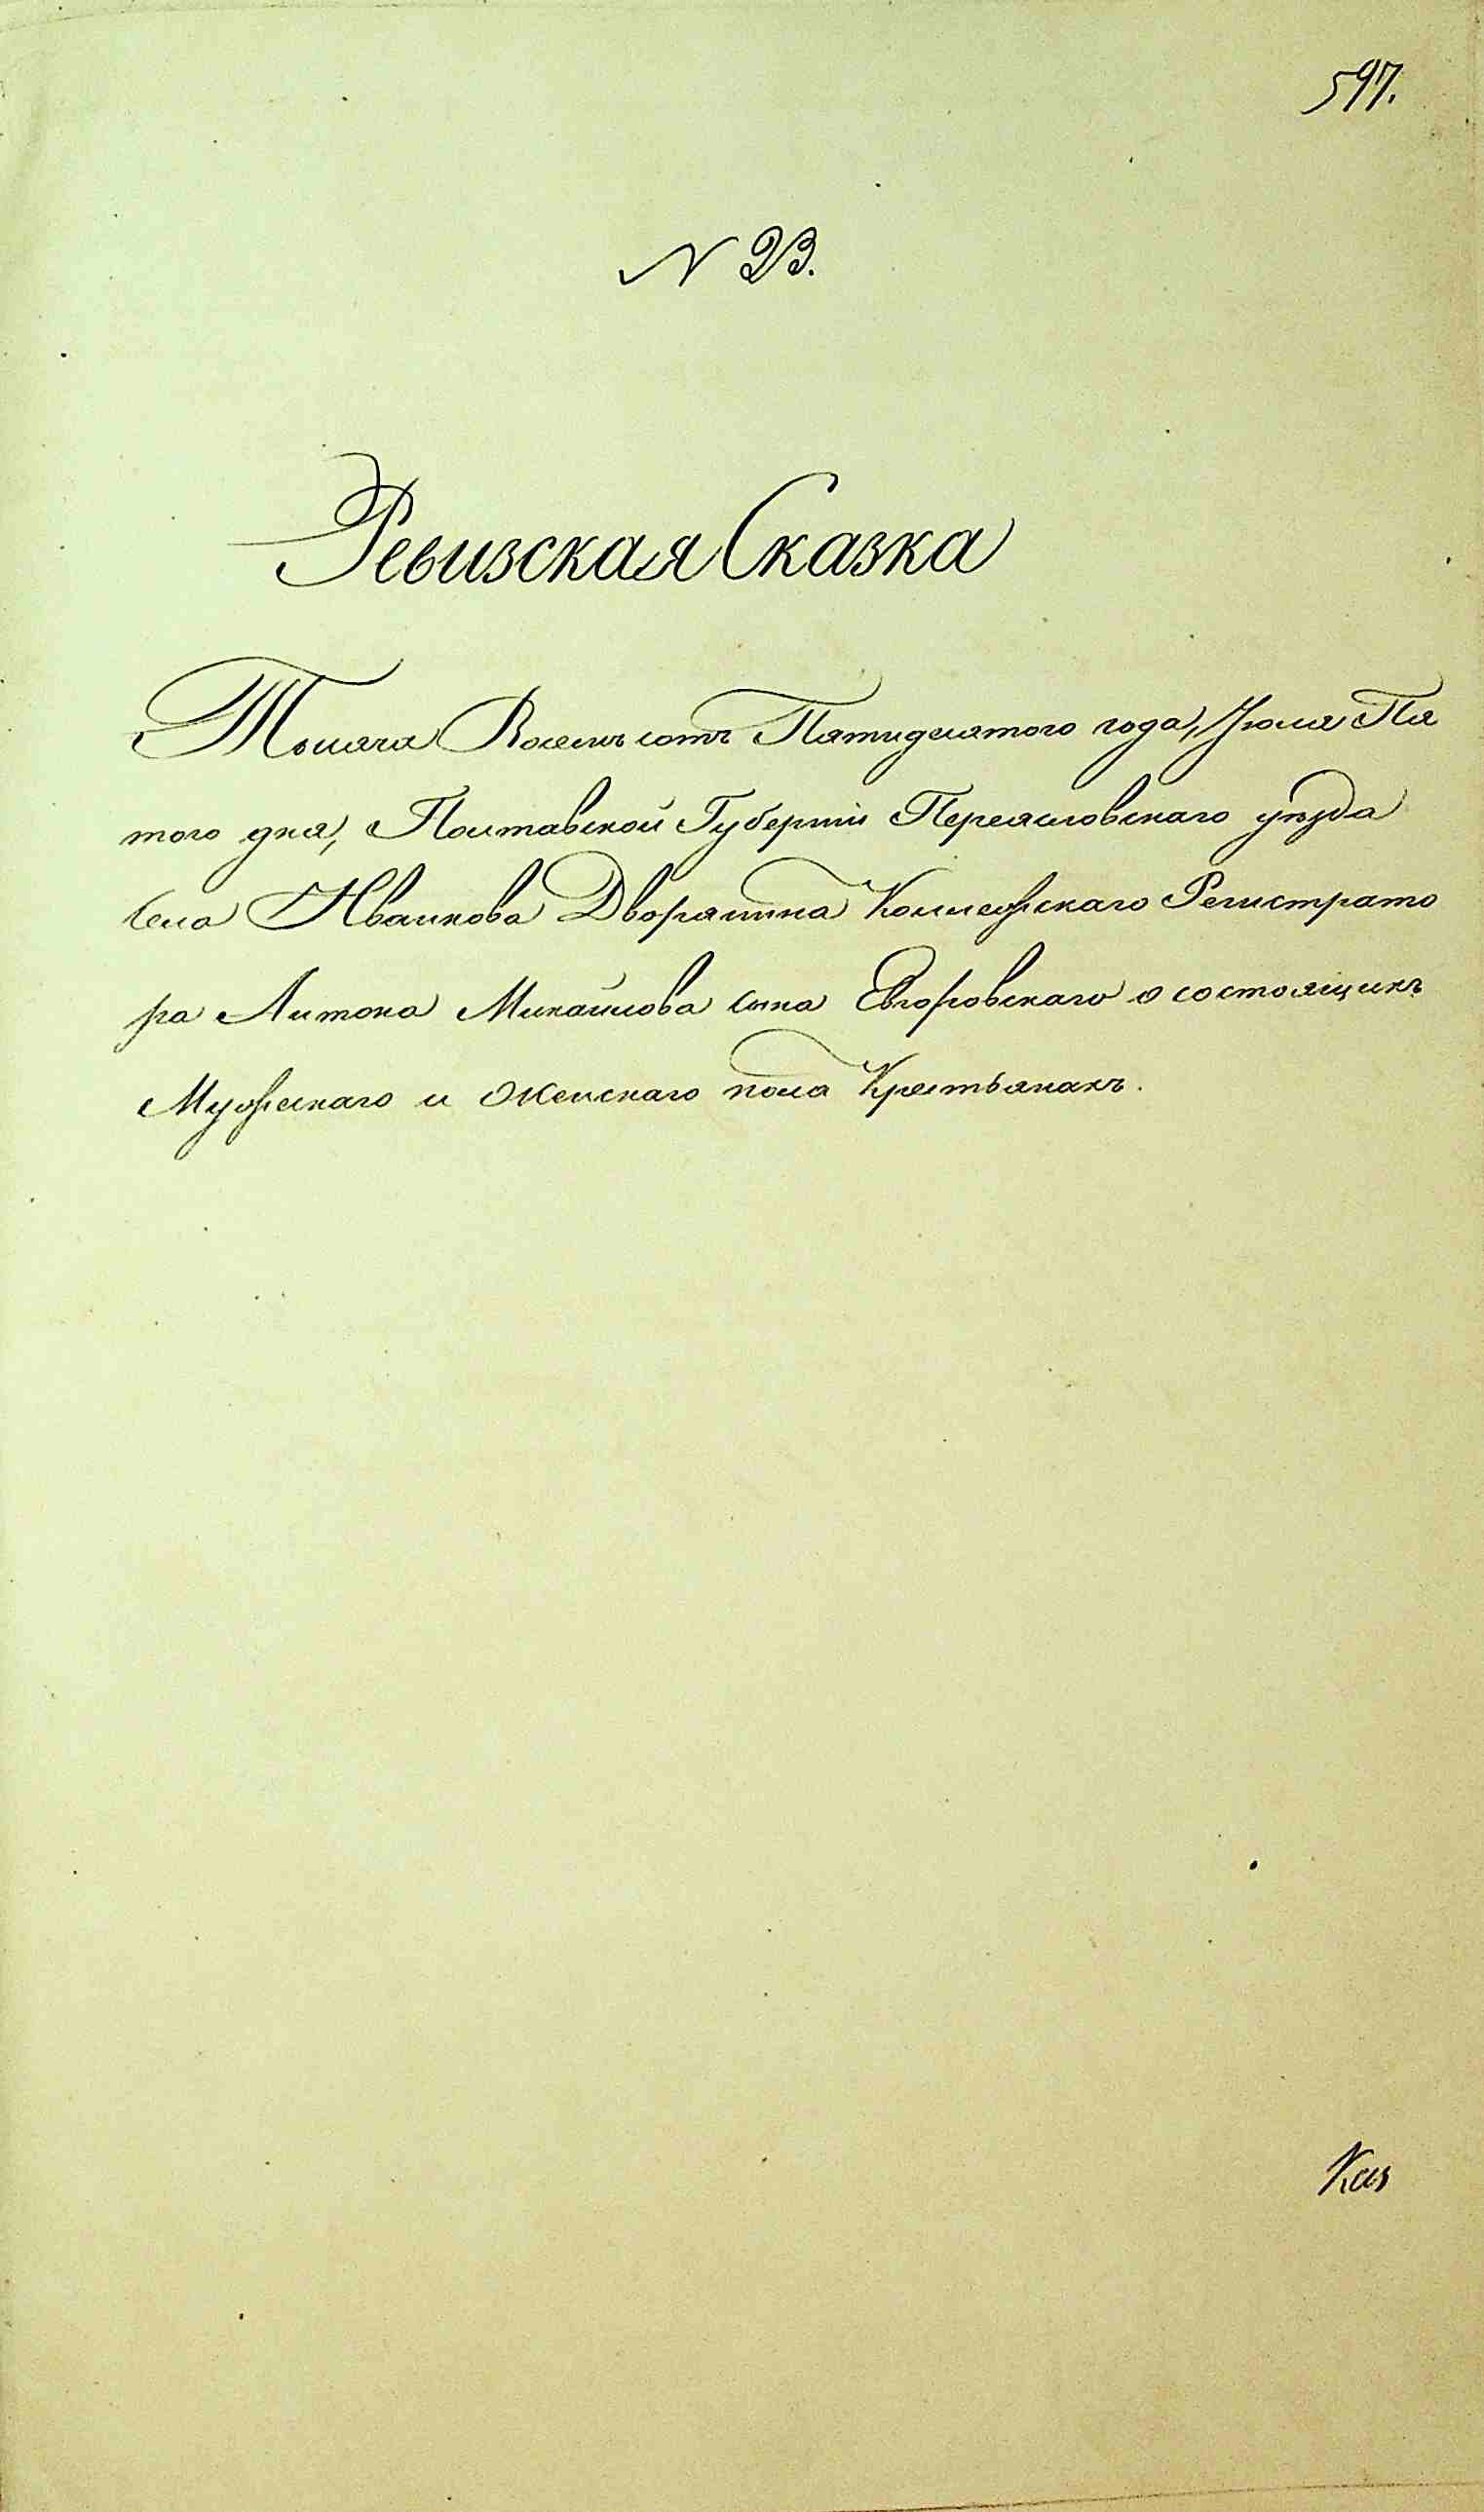 597.
N 23.
Ревизская Сказка
Тысяча Восемьсотъ Пятидесятого года, Июля Пя
того дня, Полтавской Губернии Переясловскаго уѣзда
Села Иванкова Дворянина Коллежскаго Регистрато
ра Антона Михайлова сына Евгоровскаго о состоящихъ
Мужескаго и Женскаго пола Крестьянахъ.